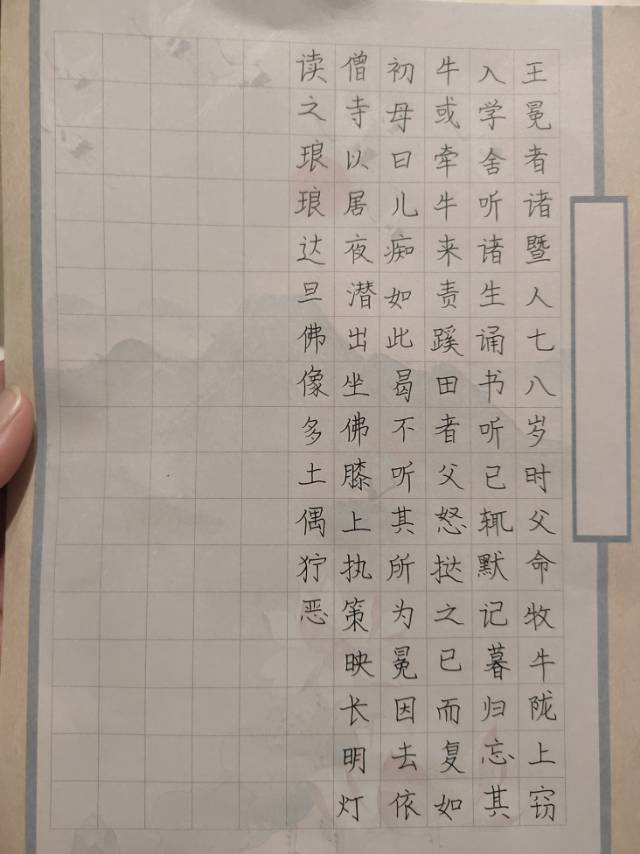 王冕者诸暨人七八岁时父命牧牛陇上窃
入学舍听诸生诵书听已辄默记暮归忘其
牛或牵牛来责蹊田者父怒挞之已而复如
初母曰儿痴如此曷不听其所为冕因去依
僧寺以居夜潜出坐佛膝上执策映长明灯
读之琅琅达旦佛像多土偶狞恶